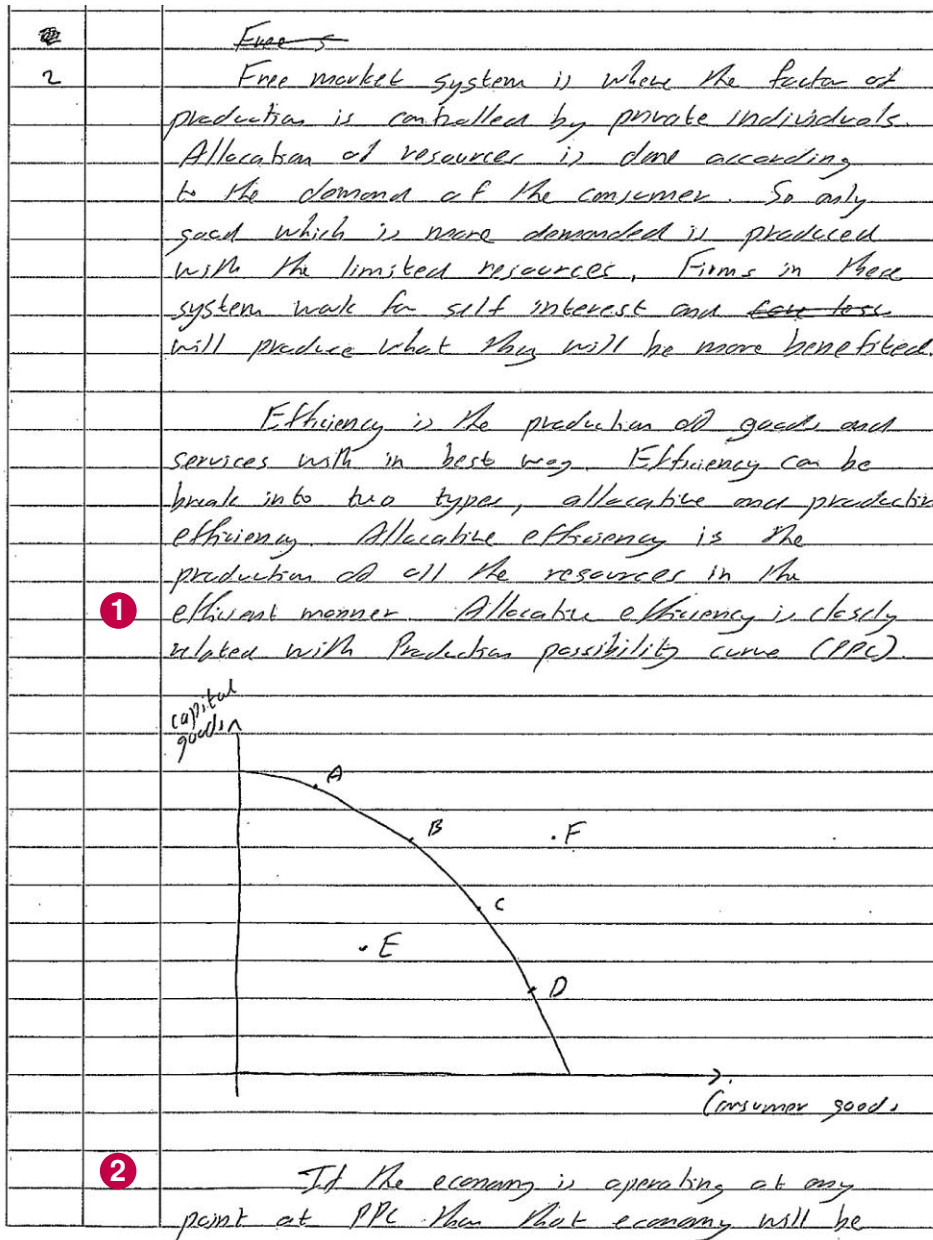 Free s
2 Free market system is where the factor of
production is controlled by private individuals.
Allocation of resources is done according
to the demand of the consumer. So only
good which is more demanded is produced
with the limited resources. Firms in these
system work for self interest and
will produce what they will be more benefited.
Efficiency is the production of goods and
services with in best way. Efficiency can be
break into two types, allocative and productiv
efficiency. Allocative efficiency is the
production of all the resources in the
1 efficient manner. Allocative efficiency is closely
related with Production possibility curve (PPC).
capital
goods
A
B
.F
C
.E
D
Consumer goods
2 If the economy is operating at any
point at PPC then that economy will be